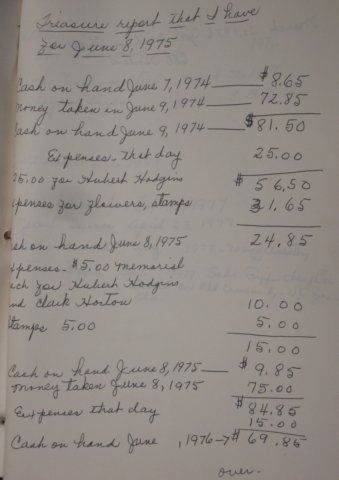 Treasure report that I have
for June 8, 1975
Cash on hand June 7, 1974 — $8.65
money taken in June 9, 1974 — 72.85
Cash on hand June 9, 1974 — $81.50
Expenses - that day 25.00
25.00 for Hubert Hodgins $56.50
xpenses for flowers, stamps 31.65
sh on hand June 8, 1975 24.85
xpenses - $5.00 memorial
ach for Hubert Hodgins
nd Clark Horton 10.00
tamps 5.00 5.00
15.00
Cash on hand June 8, 1975 — $9.85
money taken June 8, 1975 75.00
$84.85
Expenses that day 15.00
Cash on hand June , 1976 → $69.85
over.